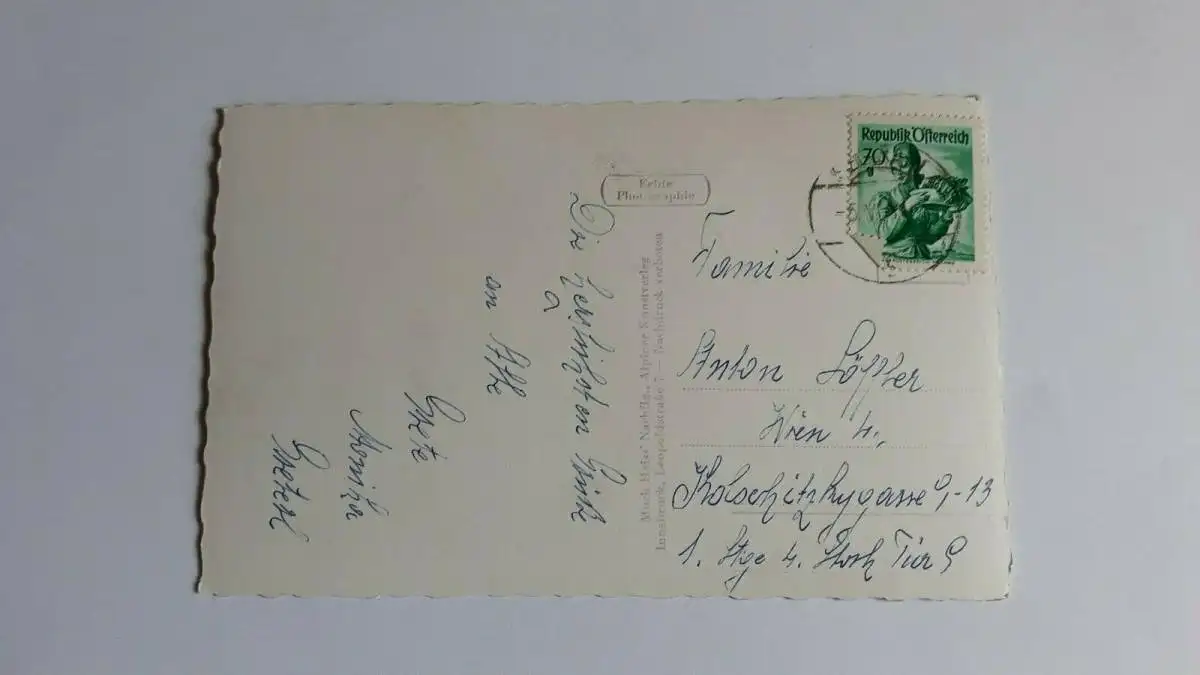 Republik Österreich
70
Echte
Photographie
Familie
Anton Löffler
Wien 4.,
Kolschitzkygasse 9-13
1. Stge 4. Stock Tür 9
Die herzlichsten Grüße
an Alle
Grete
Monika
Much Heiss' Nachflg., Alpiner Kunstverlag
Innsbruck, Leopoldstraße 7 — Nachdruck verboten